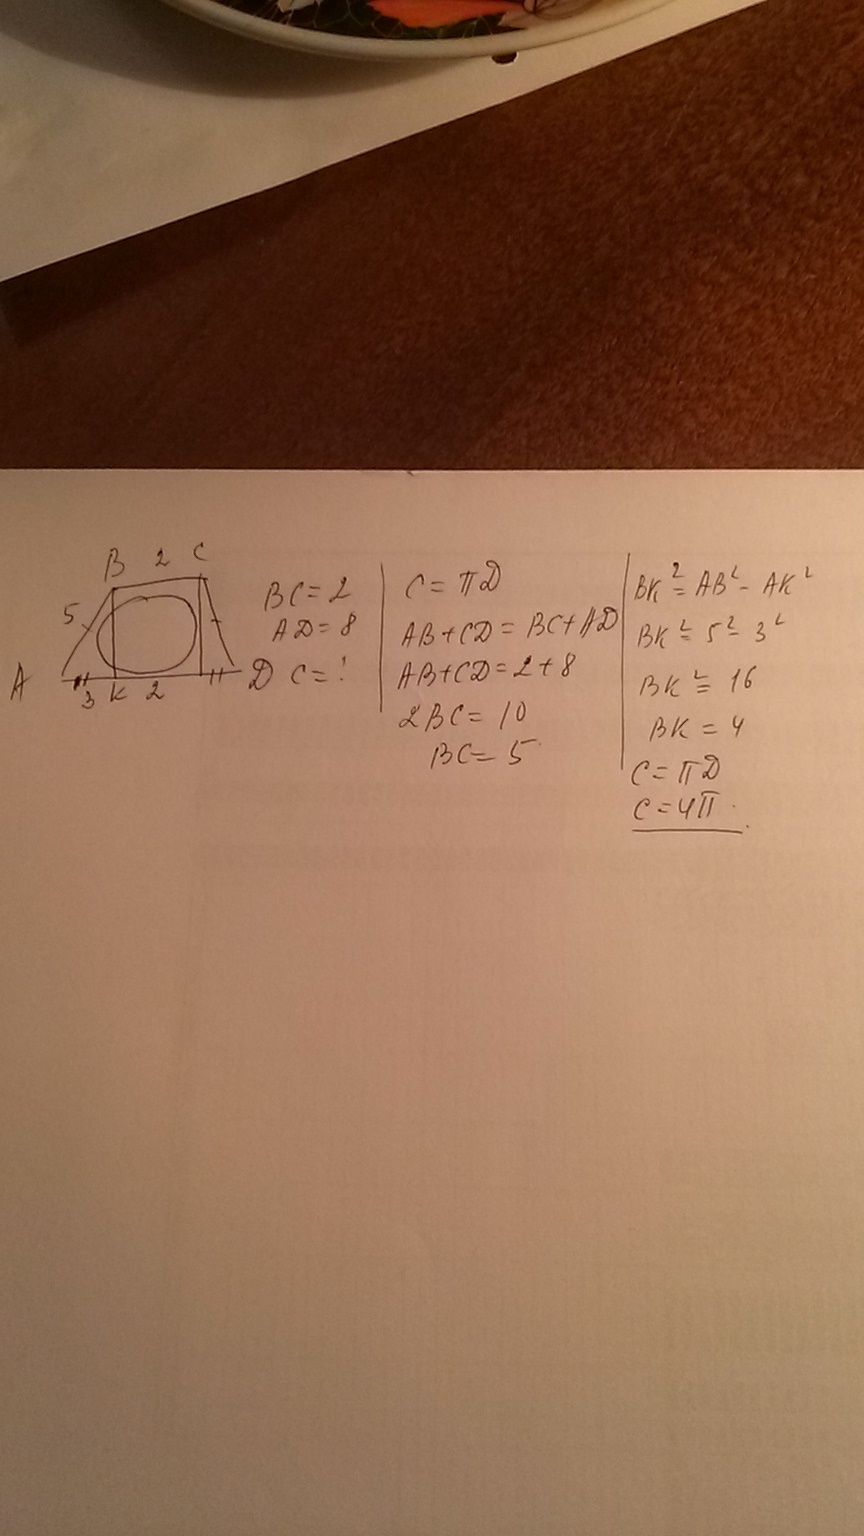 B 2 C
5
A 3 K 2 D
BC = 2
AD = 8
C = ?
C = πD
AB + CD = BC + AD
AB + CD = 2 + 8
2BC = 10
BC = 5
BK² = AB² - AK²
BK² = 5² - 3²
BK² = 16
BK = 4
C = πD
C = 4π.